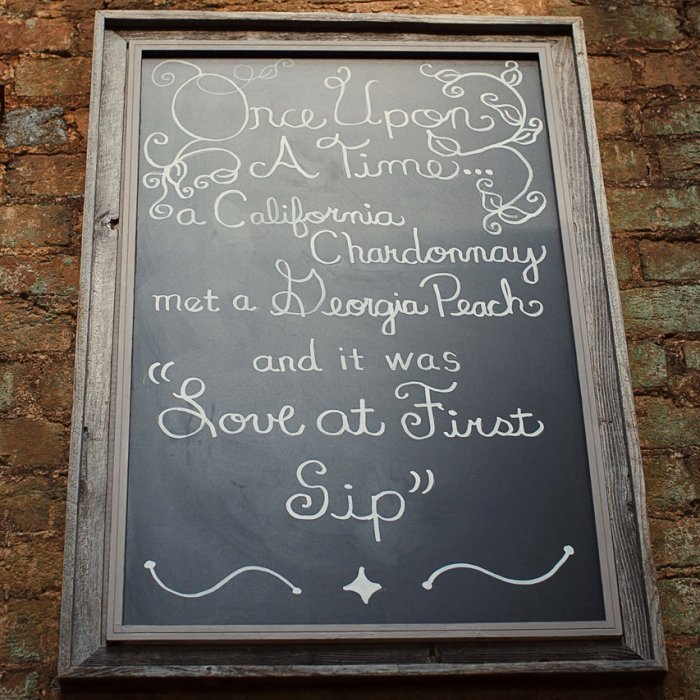 Once Upon
A Time...
a California
Chardonnay
met a Georgia Peach
and it was
“Love at First
Sip”